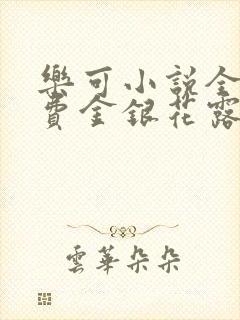 樂可小説全
費金銀花露
雲華朵朵